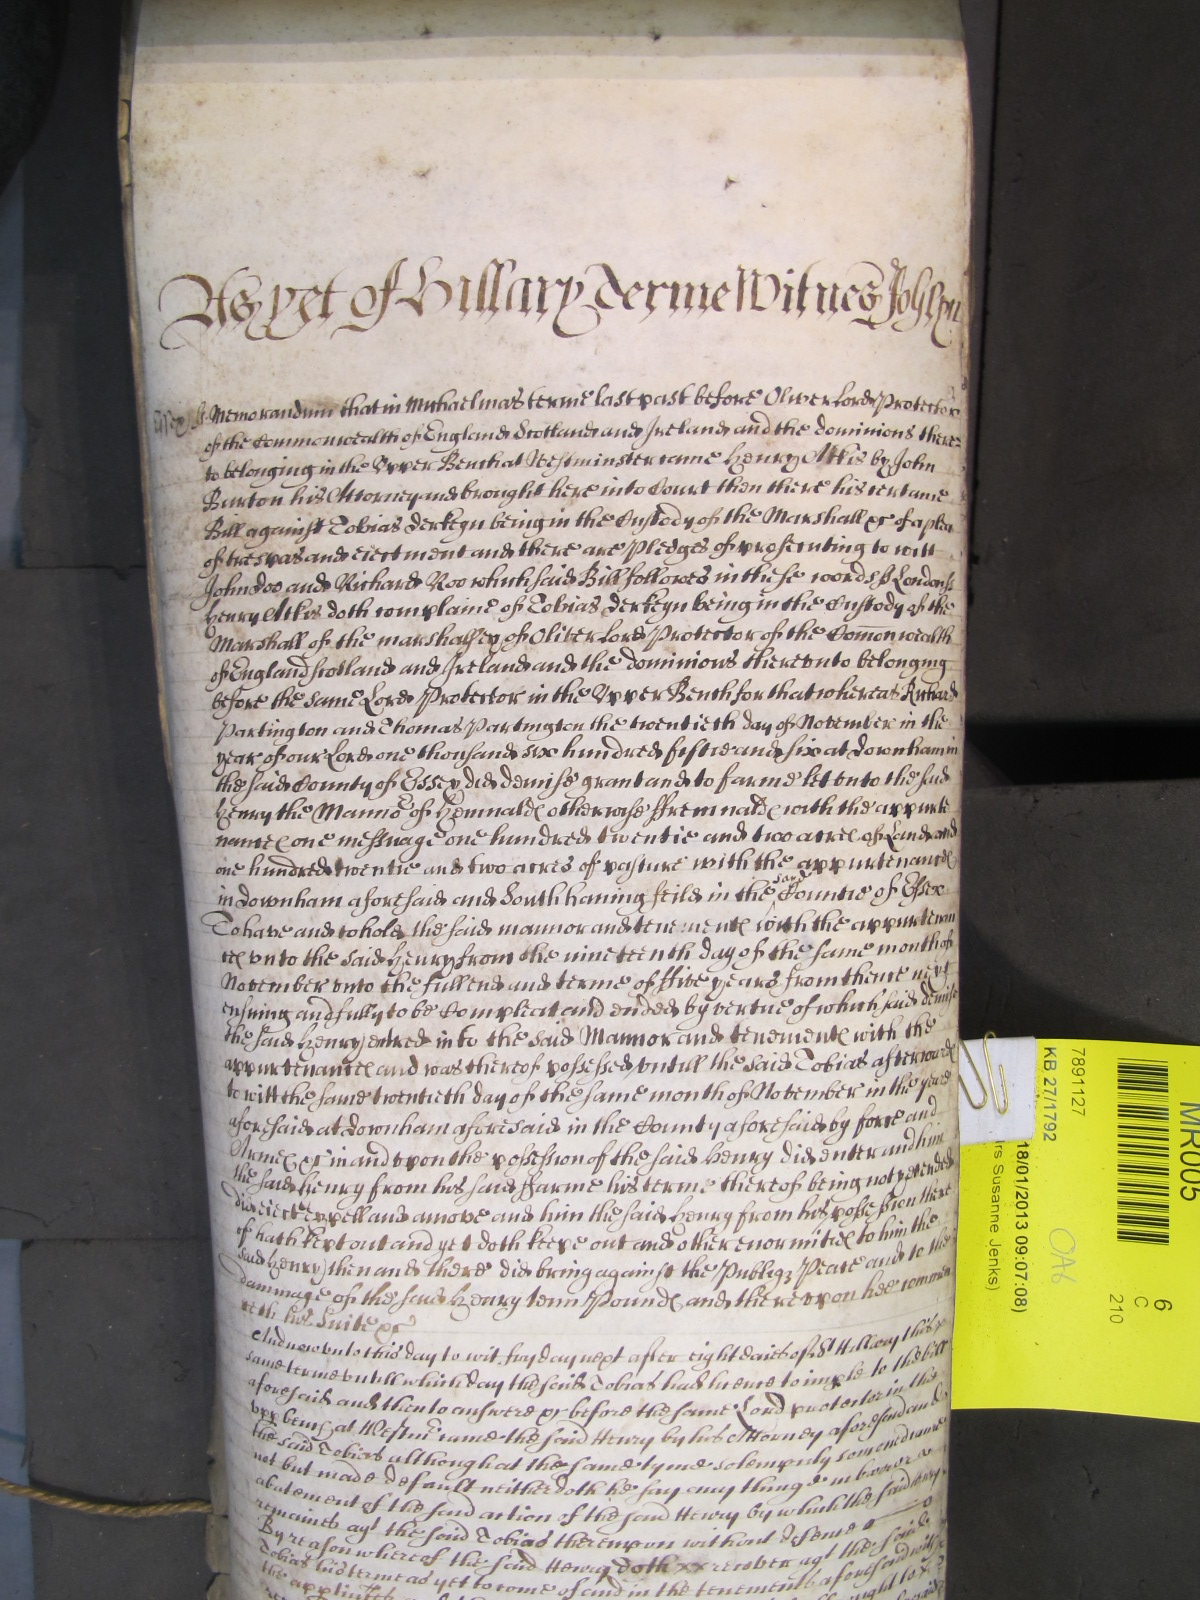 As yet of Hillary Terme Witnes John
Essex ss Memorandum that in Michaelmas terme last past before Oliver Lord Protector
of the Commonwealth of England Scotland and Ireland and the dominions there=
to belonging in the Upper Bench at Westminster came Henry Atkis by John
Burton his Attorney and brought here into Court then there his certaine
Bill against Tobias Derkeyn being in the Custody of the Marshall &c of a plea
of trespas and eiectment and there are Pledges of prosecuting to witt
John doo and Richard Roo which said Bill followes in these words ss London ss
Henry Atkis doth complaine of Tobias Derkeyn being in the Custody of the
Marshall of the marshalsey of Oliver Lord Protector of the Comonwealth
of England Scotland and Ireland and the dominions thereunto belonging
before the same Lord Protector in the Upper Bench for that whereas Richard
Partington and Thomas Partington the twentieth day of November in the
year of our Lord one thousand six hundred fiftie and six at downham in
the said County of Essex did demise grant and to farme let unto the said
Henry the Manno of Hemnalds otherwise ffremnalds with the appurte
nances one messuage one hundred twentie and two acres of Land and
one hundred twentie and two acres of pasture with the appurtenances
in downham aforesaid and South haning feild in the said Countie of Essex
To have and to hold the said mannor and tenements with the appurtenan
ces unto the said Henry from the nineteenth day of the same month of
November unto the full end and terme of ffive years from thence next
ensuing and fully to be Compleat and ended by vertue of which said demise
the said Henry entred into the said Mannor and tenements with the
appurtenances and was thereof possessed untill the said Tobias afterwards
to witt the same twentieth day of the same month of November in the yeare
aforesaid at downham aforesaid in the County aforesaid by force and
Armes &c in and upon the possession of the said Henry did enter and him
the said Henry from his said ffarme his terme thereof being not yet ended
did eiect expell and amove and him the said Henry from his possession there
of hath kept out and yet doth keepe out and other enormities to him the
said Henry then and there did bring against the Publiq Peace and to the
dammage of the said Henry tenn Pounds and thereupon hee
his Suite &c
And now unto this day to wit fryday next after eight daies of St Hillary this
same terme untill which day the said Tobias had licence to imple to the bill
aforesaid and then to answere &c before the same Lord protector in the
upp bench at Westmr came the said Henry by his Attorney aforesaid and
the said Tobias although at the same tyme solempnly
not but made default neither doth he say any thinge in barr or
abatement of the said action of the said Henry by which the said Henry
remaines agt the said Tobias thereupon without defence
By reason whereof the said Henry doth xx recover agt the said
Tobias his terme as yet to come of and in the tenements aforesaid with
the
MR005
7891127
KB 27/1792
18/01/2013 09:07:08)
rs Susanne Jenks)
OA6
6
C
210